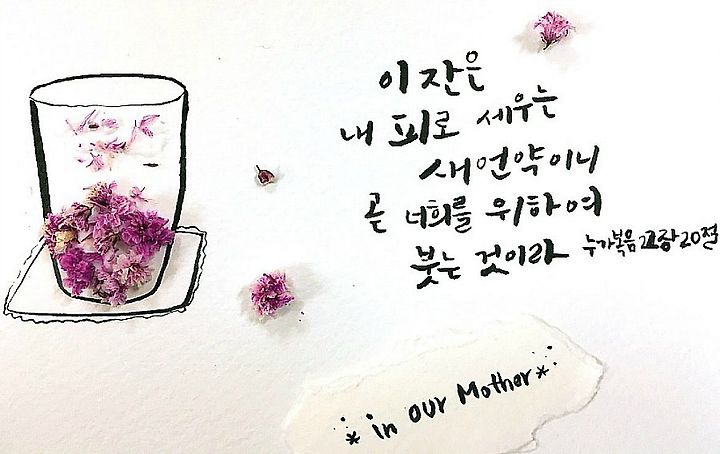 이 잔은
내 피로 세우는
새 언약이니
곧 너희를 위하여
붓는 것이라 누가복음 22장 20절
in our Mother